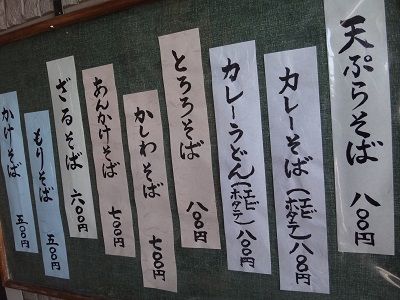 天ぷらそば 八〇〇円
カレーそば(エビホタテ)八〇〇円
カレーうどん(エビホタテ)八〇〇円
とろろそば 八〇〇円
かしわそば 七〇〇円
あんかけそば 七〇〇円
ざるそば 六〇〇円
もりそば 五〇〇円
かけそば 五〇〇円